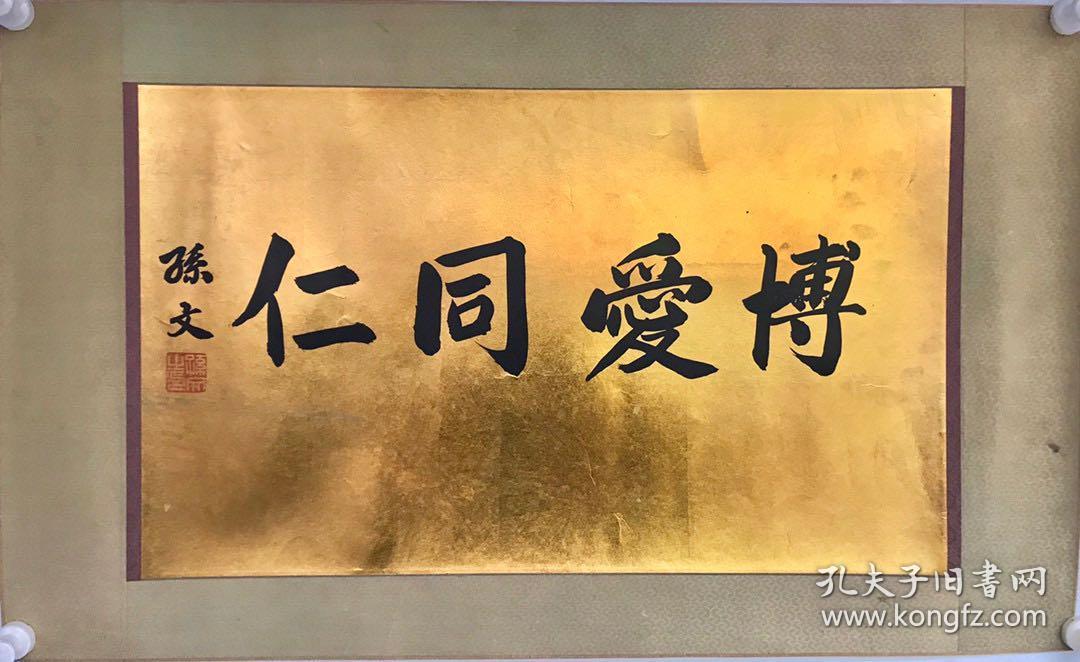 博愛同仁
孫文
孫文之印
孔夫子旧書网
www.kongfz.com